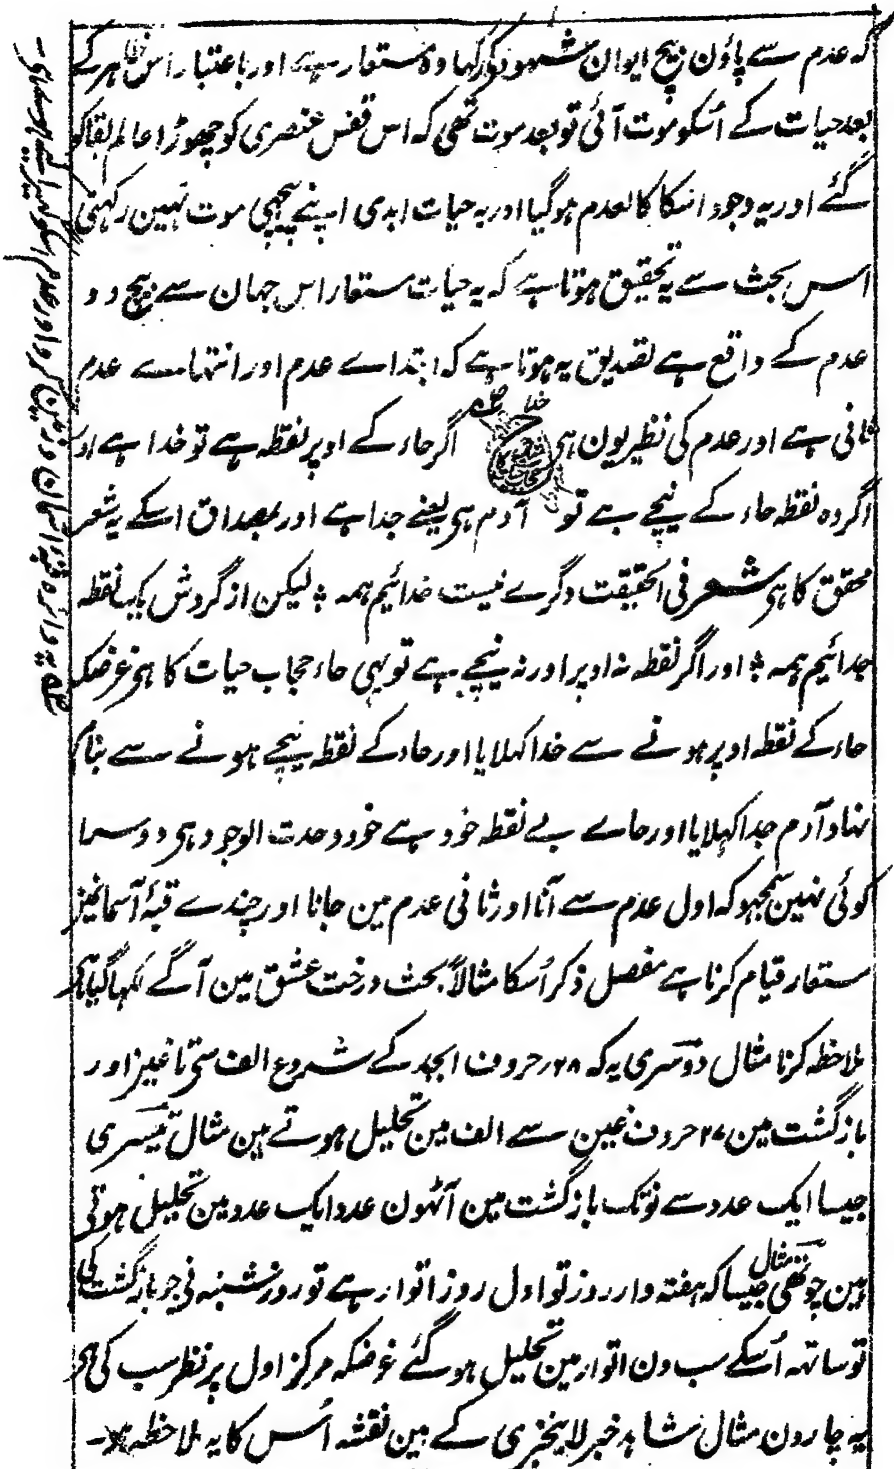 کہ عدم سے پاؤن بیچ ایوان مشہود کو رکہا وہ مستعار ہے اور باعتبار اس ظاہر کے
بعد حیات کے اُسکو موت آئی تو بعد موت تھی کہ اس قفس عنصری کو چھوڑا عالم بقا کو
گئے اور یہ وجود اسکا کالعدم ہو گیا اور یہ حیات ابدی اپنے پیچہی موت نہین رکہتی
اس بحث سے یہ تحقیق ہوتا ہے کہ یہ حیات مستعار اس جہان سے بیچ دو
عدم کے واقع ہے تصدیق یہ ہوتا ہے کہ ابتداے عدم اور انتہا سے عدم
ثانی ہے اور عدم کی نظیر یون ہی خدا ح اگر حاء کے اوپر نقطہ ہے تو خدا ہے اور
اگر وہ نقطہ حاء کے نیچے ہے تو آدم ہی یعنے جدا ہے اور بمصداق اسکے یہ شعر
محقق کا ہی شعر فی الحقیقت دگرے نیست خدائیم ہمہ ؞ لیکن از گردش یک نقطہ
جدائیم ہمہ ؞ اور اگر نقطہ نہ اوپر اور نہ نیچے ہے تو یہی حاء حجاب حیات کا ہی غرضکہ
حاء کے نقطہ اوپر ہونے سے خدا کہلایا اور حاء کے نقطہ نیچے ہونے سے بنام
نہاد آدم جدا کہلایا اور حاے بے نقطہ خود ہے خود وحدت الوجود ہی دوسرا
کوئی نہین سمجہو کہ اول عدم سے آنا اور ثانی عدم مین جانا اور چندے قبۂ آسمان
مستعار قیام کرنا ہے مفصل ذکر اُسکا مثالاً بحث درخت عشق مین آگے لکہا گیا ہی
ملاحظہ کرنا مثال دوسری یہ کہ ۲۸ حروف ابجد کے شروع الف سی تا غین اور
بازگشت مین ۲۷ حروف غین سے الف مین تحلیل ہوتے ہین مثال تیسری
جیسا ایک عدد سے نو تک بازگشت مین آٹھون عدد ایک عدد مین تحلیل ہوتی
ہین چوتھی مثال جیسا کہ ہفتہ وار روز تو اول روز اتوار ہے تو روز شنبہ نی جو بازگشت کی
تو ساتہہ اُسکے سب دن اتوار مین تحلیل ہو گئے غرضکہ مرکز اول پر نظر سب کی ہی
یہ چارون مثال شاہد خبر لایخبری کے ہین نقشہ اُس کا یہ ملاحظہ ہو۔